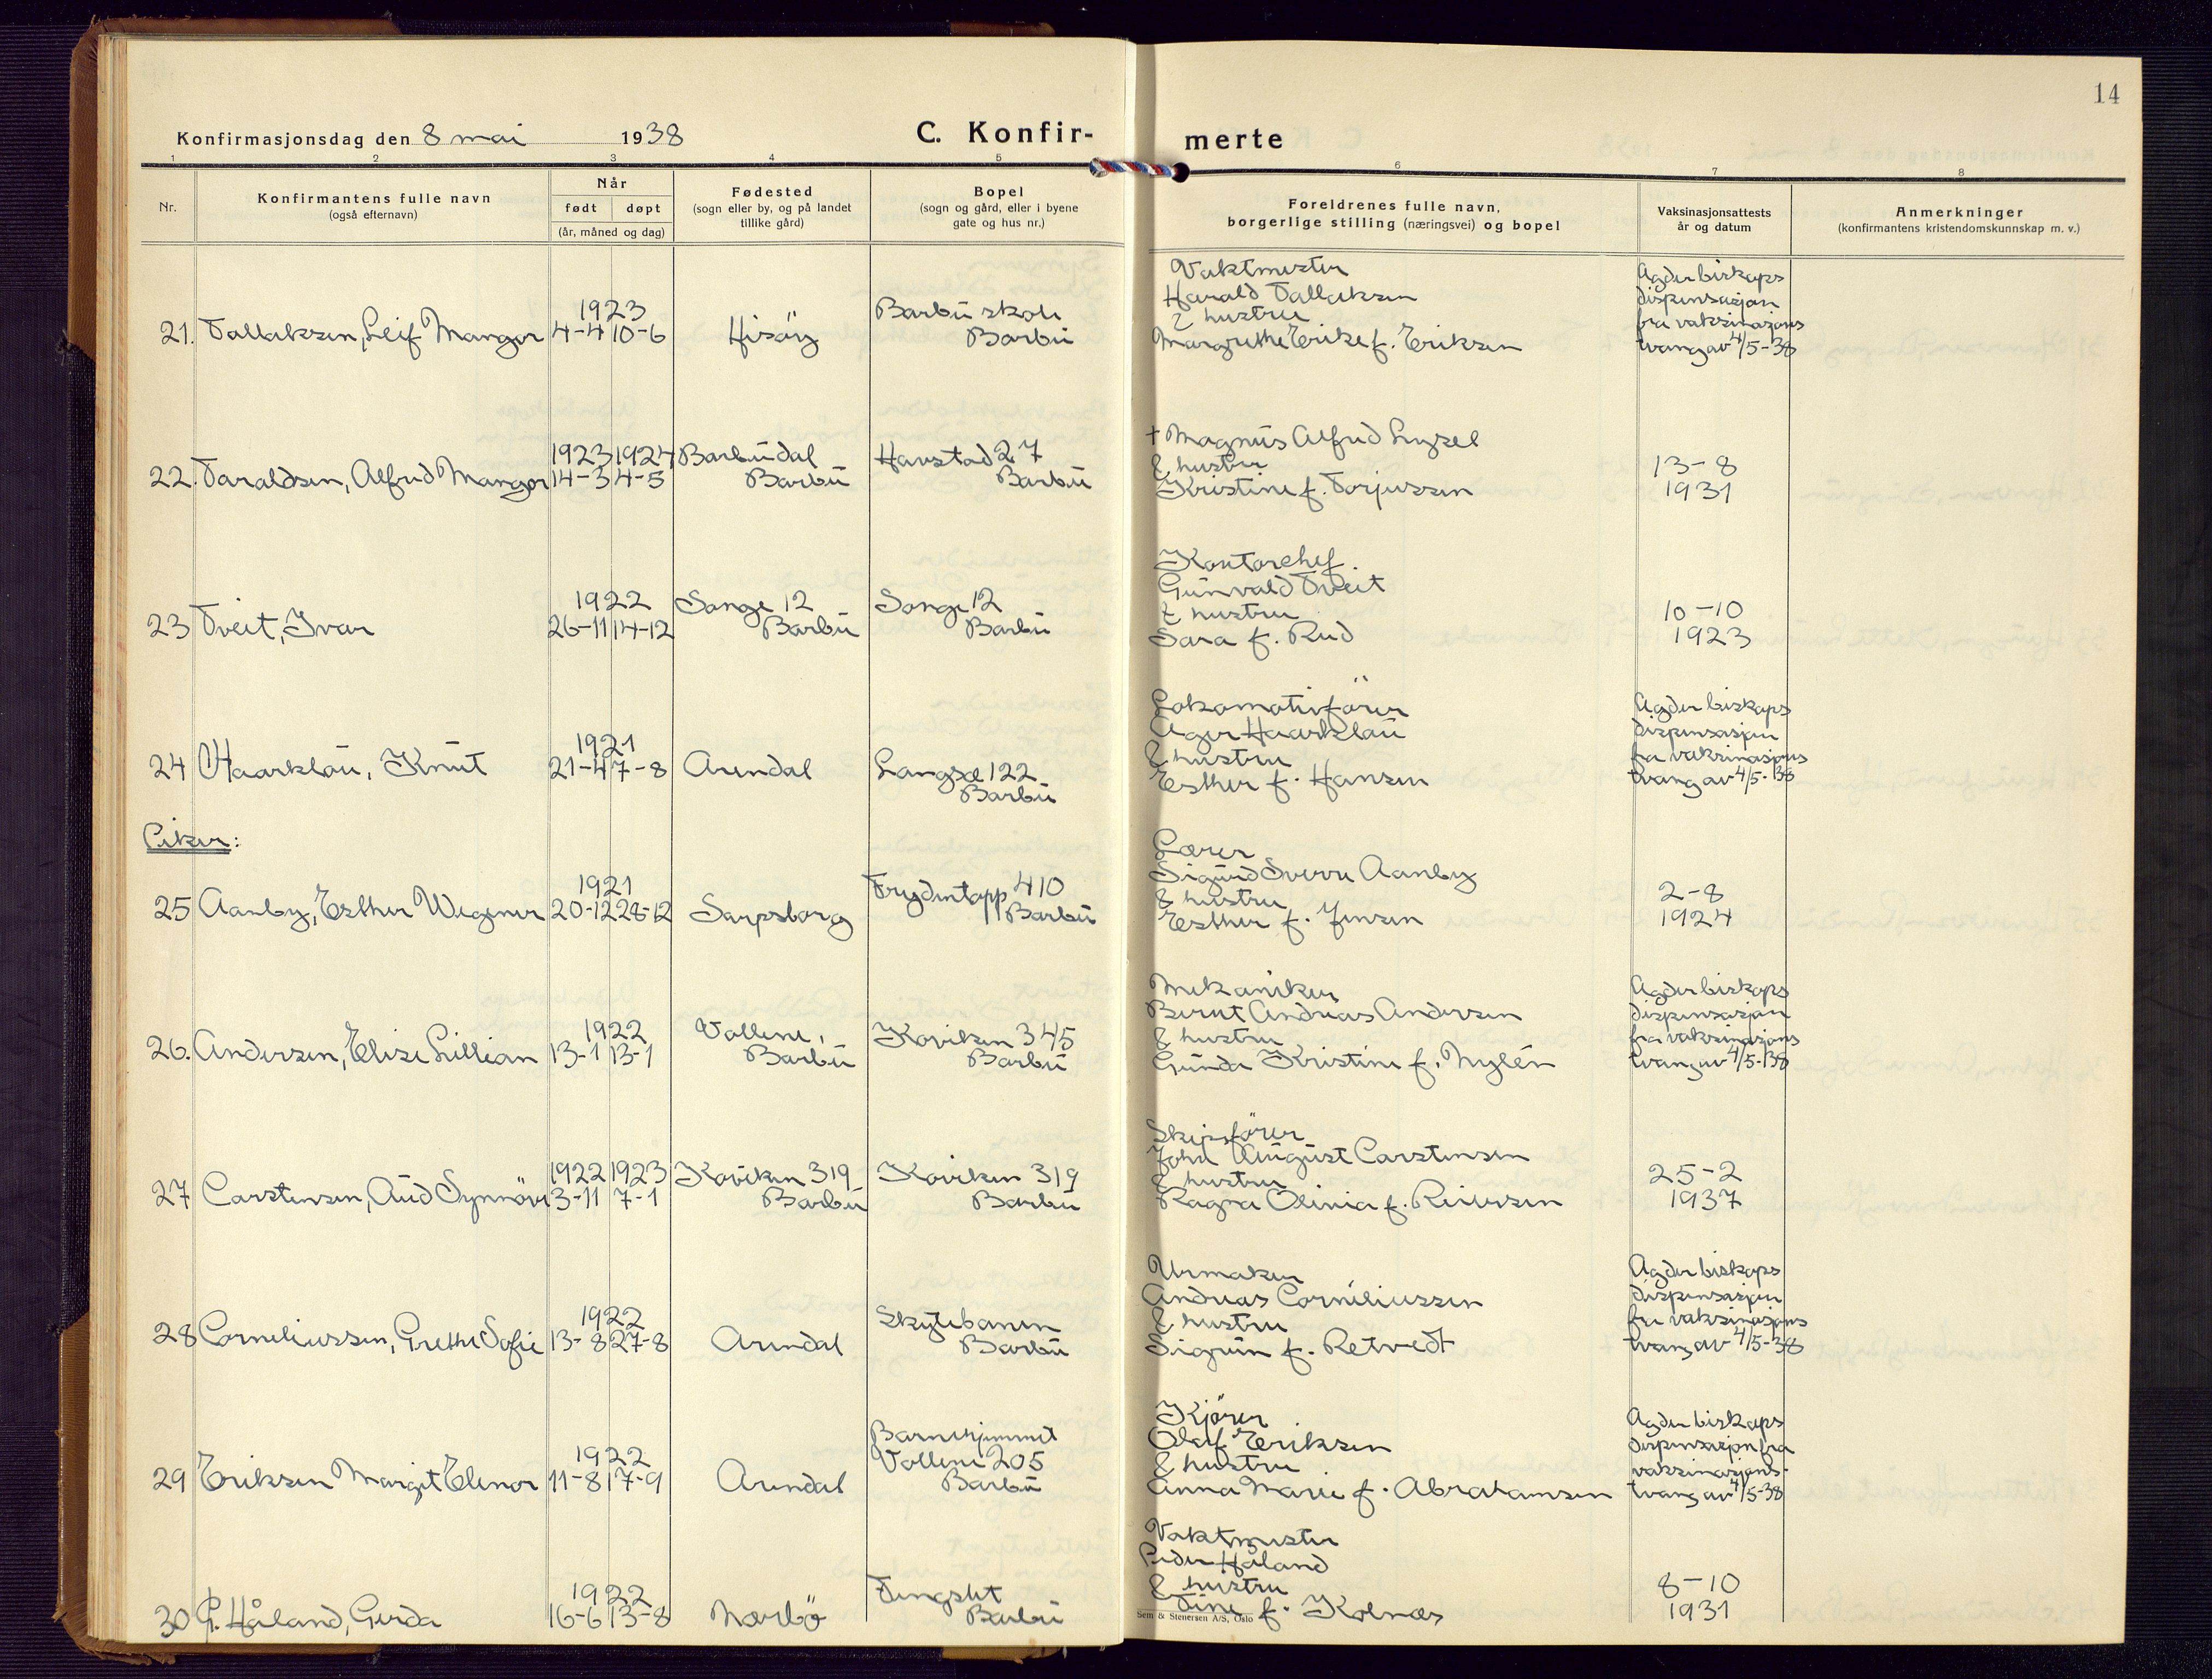 14
Konfirmasjonsdag den 8 mai 1938
C. Konfirmerte
1 2 3 4 5 6 7 8
Nr.
Konfirmantens fulle navn
(også efternavn)
Når
født døpt
(år, måned og dag)
Fødested
(sogn eller by, og på landet
tillike gård)
Bopel
(sogn og gård, eller i byene
gate og hus nr.)
Foreldrenes fulle navn,
borgerlige stilling (næringsvei) og bopel
Vaksinasjonsattests
år og datum
Anmerkninger
(konfirmantens kristendomskunnskap m. v.)
21. Tallaksen, Leif Mangor
1923
4-4 10-6
Hisöy
Barbu skole
Barbu
Vaktmester
Harald Tallaksen
& hustru
Margrethe Erike f. Eriksen
Agder biskops
dispensasjon
fra vaksinasjons
tvang av 4/5-38
22. Taraldsen, Alfred Mangor
1923 1924
14-3 4-5
Barbudal
Barbu
Havstad 27
Barbu
+ Magnus Alfred
& hustru
Kristine f. Torjussen
13-8
1931
23 Tveit, Ivar
1922
26-11 14-12
Songe 12
Barbu
Songe 12
Barbu
Kontorchef.
Gunvald Tveit
& hustru
Sara f. Rud
10-10
1923
24 Haarklau, Knut
1921
21-4 7-8
Arendal
Langsæ 122
Barbu
Lokomotivförer
Ager Haarklau
& hustru
Esther f. Hansen
Agder biskops
dispensasjon
fra vaksinasjons
tvang av 4/5-38
Piker:
25 Aanby, Esther Wegener
1921
20-12 28-12
Sarpsborg
Frydentopp 410
Barbu
Lærer
Sigurd Sverre Aanby
& hustru
Esther f. Jensen
2-8
1924
26. Andersen, Elise Lillian
1922
13-1 13-1
Vollene,
Barbu
Koviken 345
Barbu
Mekaniker
Bernt Andreas Andersen
& hustru
Gunda Kristine f. Nylén
Agder biskops
dispensasjon
fra vaksinasjons
tvang av 4/5-38
27 Carstensen, Aud Synnöve
1922 1923
3-11 7-1
Koviken 319
Barbu
Koviken 319
Barbu
Skipsförer
John August Carstensen
& hustru
Ragna Olinia f. Reiersen
25-2
1937
28 Corneliussen, Grethe Sofie
1922
13-8 27-8
Arendal
Skytebanen
Barbu
Urmaker
Andreas Corneliussen
& hustru
Sigrun f. Retvedt
Agder biskops
dispensasjon
fra vaksinasjons
tvang av 4/5-38
29 Eriksen Margit Elenor
1922
11-8 17-9
Arendal
Barnehjemmet
Vollene 205
Barbu
Kjörer
Olaf Eriksen
& hustru
Anna Marie f. Abrahamsen
Agder biskops
dispensasjon fra
vaksinasjons-
tvang av 4/5-38
30 G. Håland, Gerda
1922
16-6 13-8
Nærbö
Tingslet
Barbu
Vaktmester
Peder Håland
& hustru
Tine f. Kolnæs
8-10
1931
Sem & Stenersen A/S, Oslo